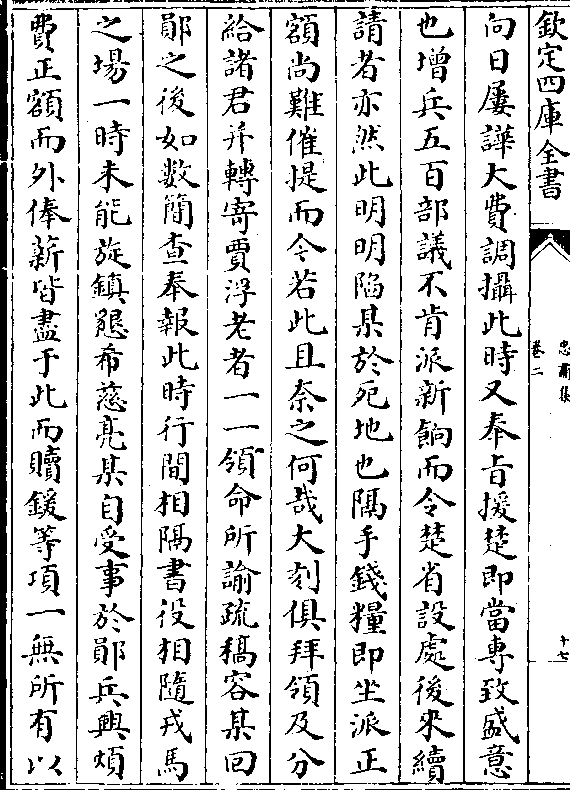 欽定四庫全書
忠肅集
卷二
十七
向日屢譁大費調攝此時又奉旨援楚即當專致盛意
也增兵五百部議不肯派新餉而令楚省設處後來續
請者亦然此明明陷某於死地也隔手錢糧即坐派正
額尚難催提而令若此且奈之何哉大刻俱拜領及分
給諸君并轉寄賈浮老者一一領命所諭疏稿容某回
鄖之後如數簡查奉報此時行間相隔書役相隨戎馬
之場一時未能旋鎮懇希慈亮某自受事於鄖兵興煩
費正額而外俸薪皆盡于此而贖鍰等項一無所有以